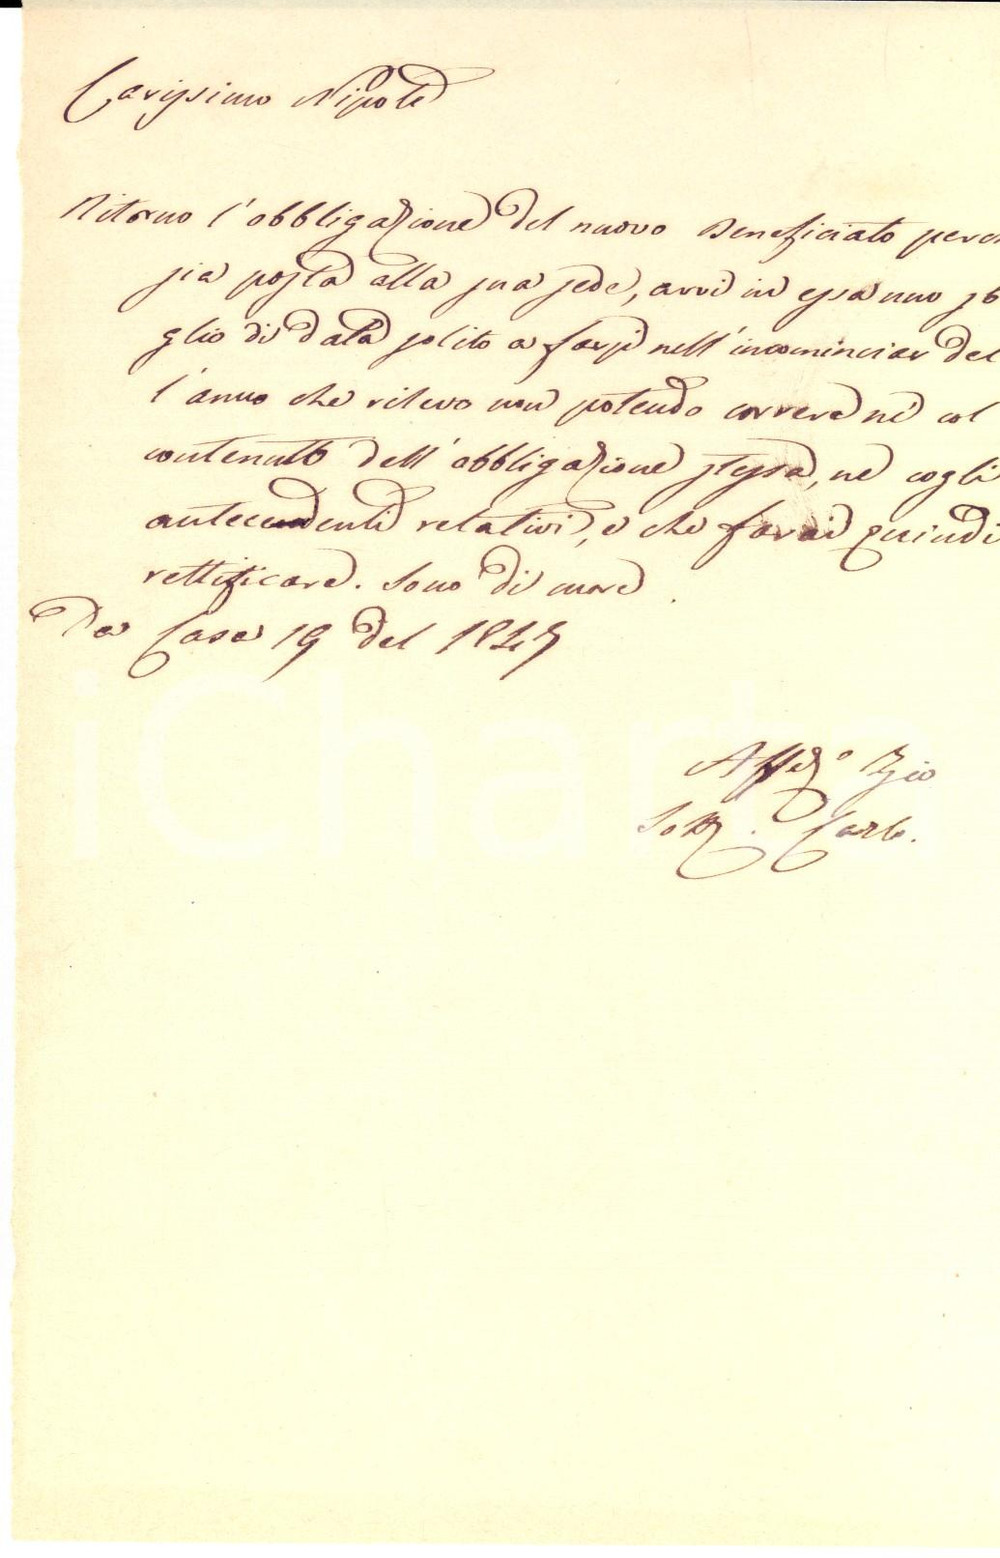 Carissimo Nipote
Ritorno l'obbligazione del nuovo Beneficiato perch
sia posta alla sua sede, avvi in essa uno sb
glio di data solito a farsi nell'incominciar del
l'anno che rilevo non potendo correre nè col
contenuto dell'obbligazione stessa, nè cogli
antecedenti relativi, e che farai quindi
rettificare. Sono di more
Da Casa 19 del 1847
Affez.o Zio
Carlo.
iCharta